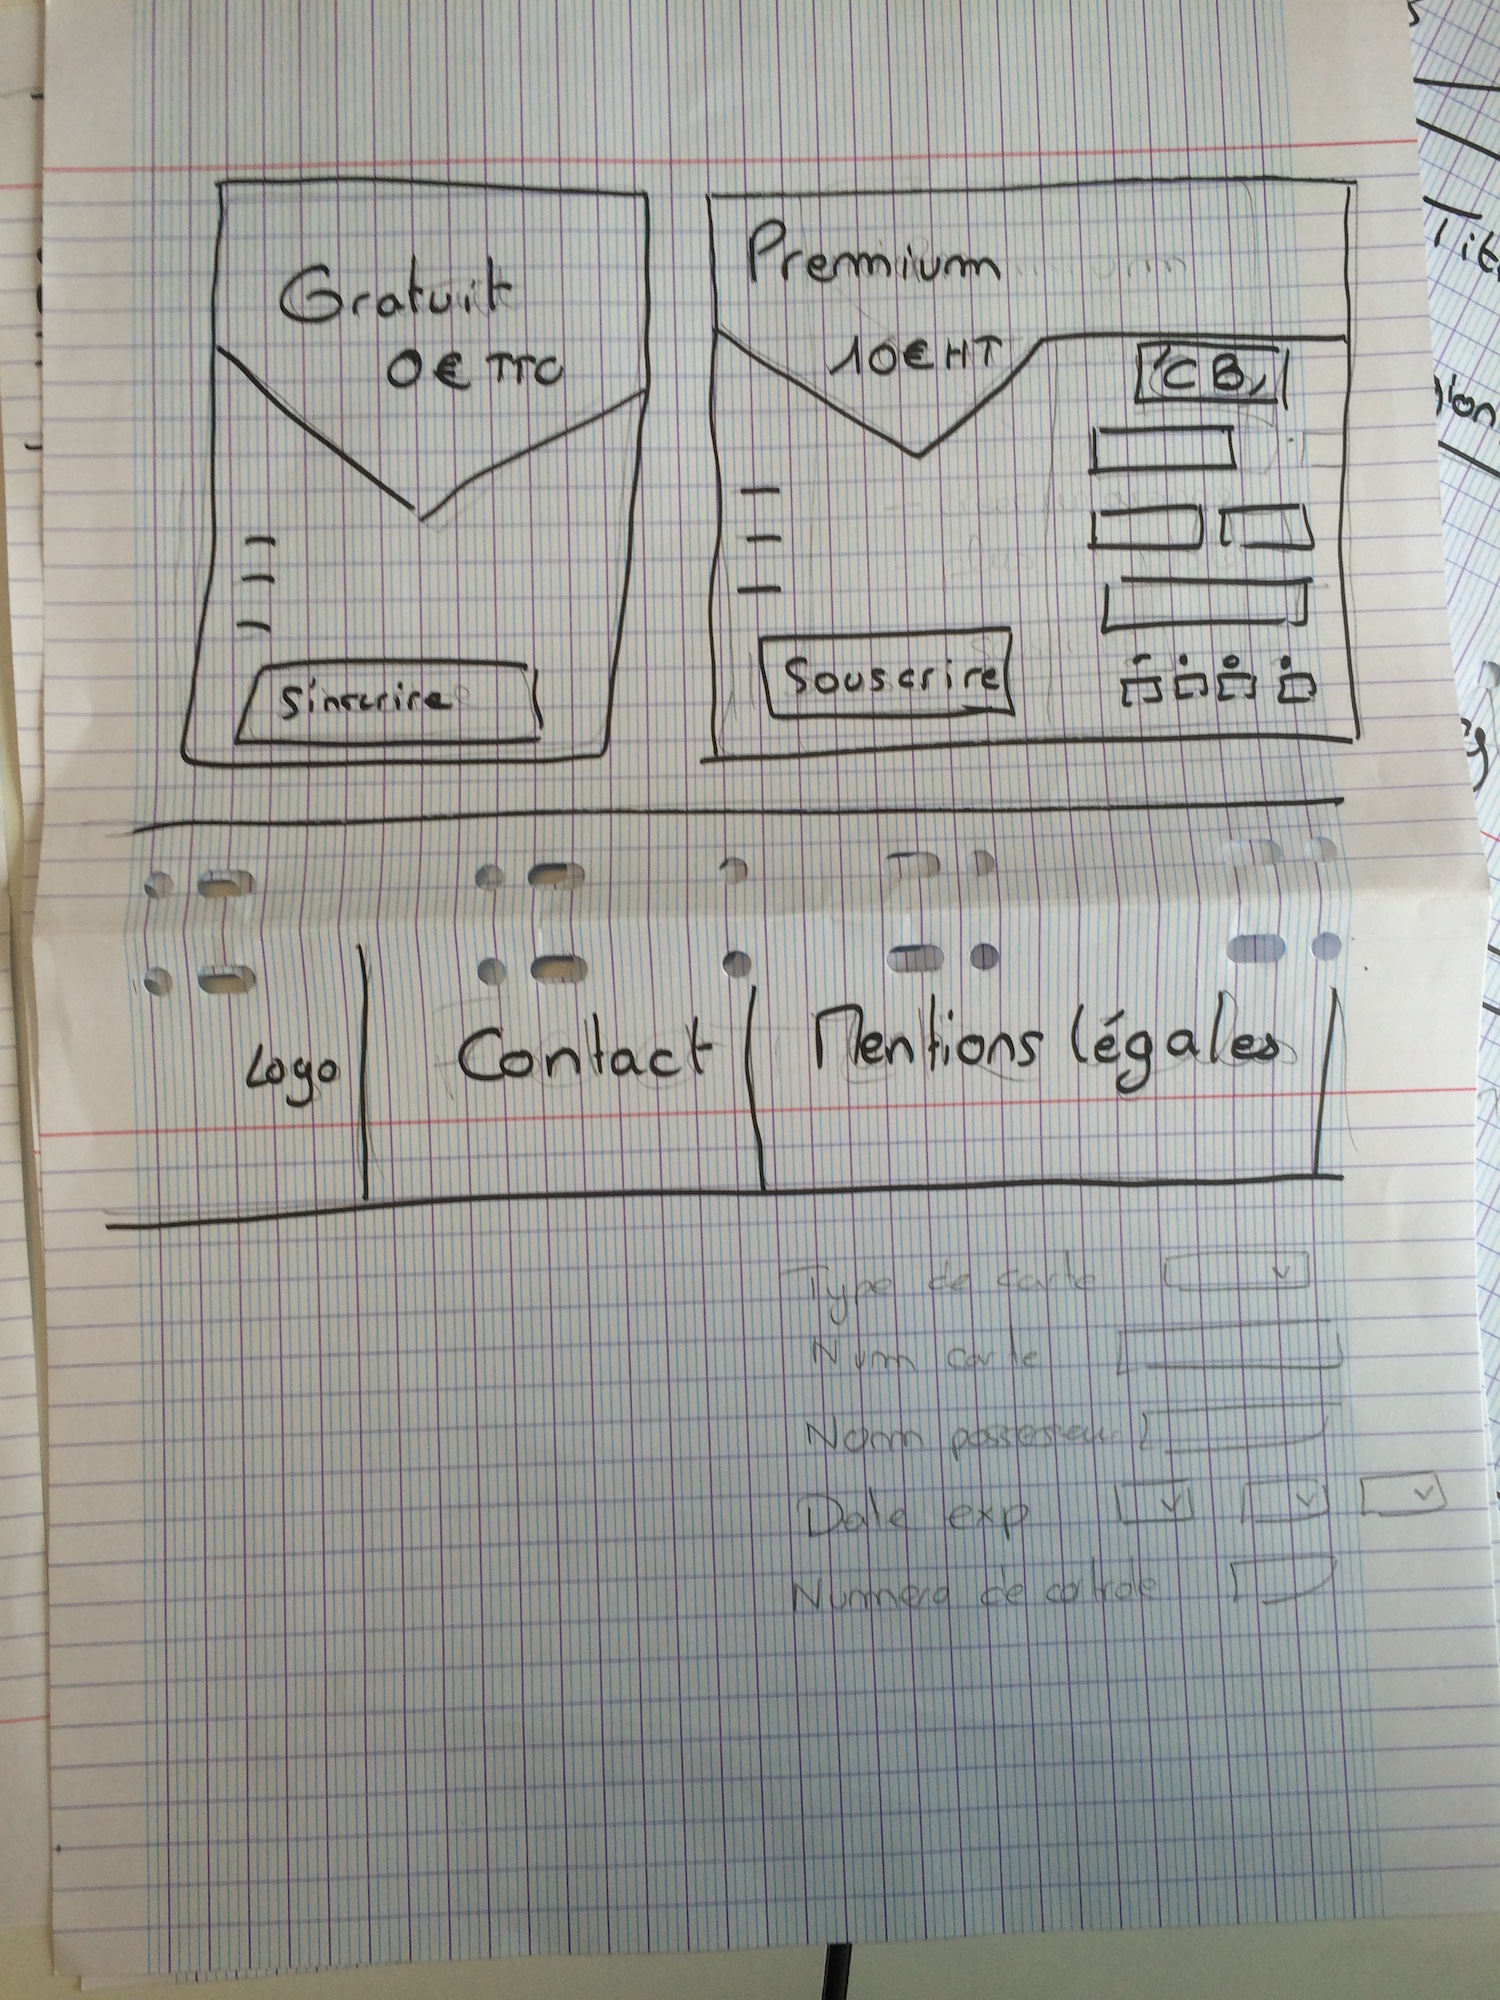 Gratuit
0€ TTC
S'inscrire
Premium
10€ HT
CB
Souscrire
Logo
Contact
Mentions légales
Type de carte
Num carte
Nom possesseu
Date exp
Numero de cotrole